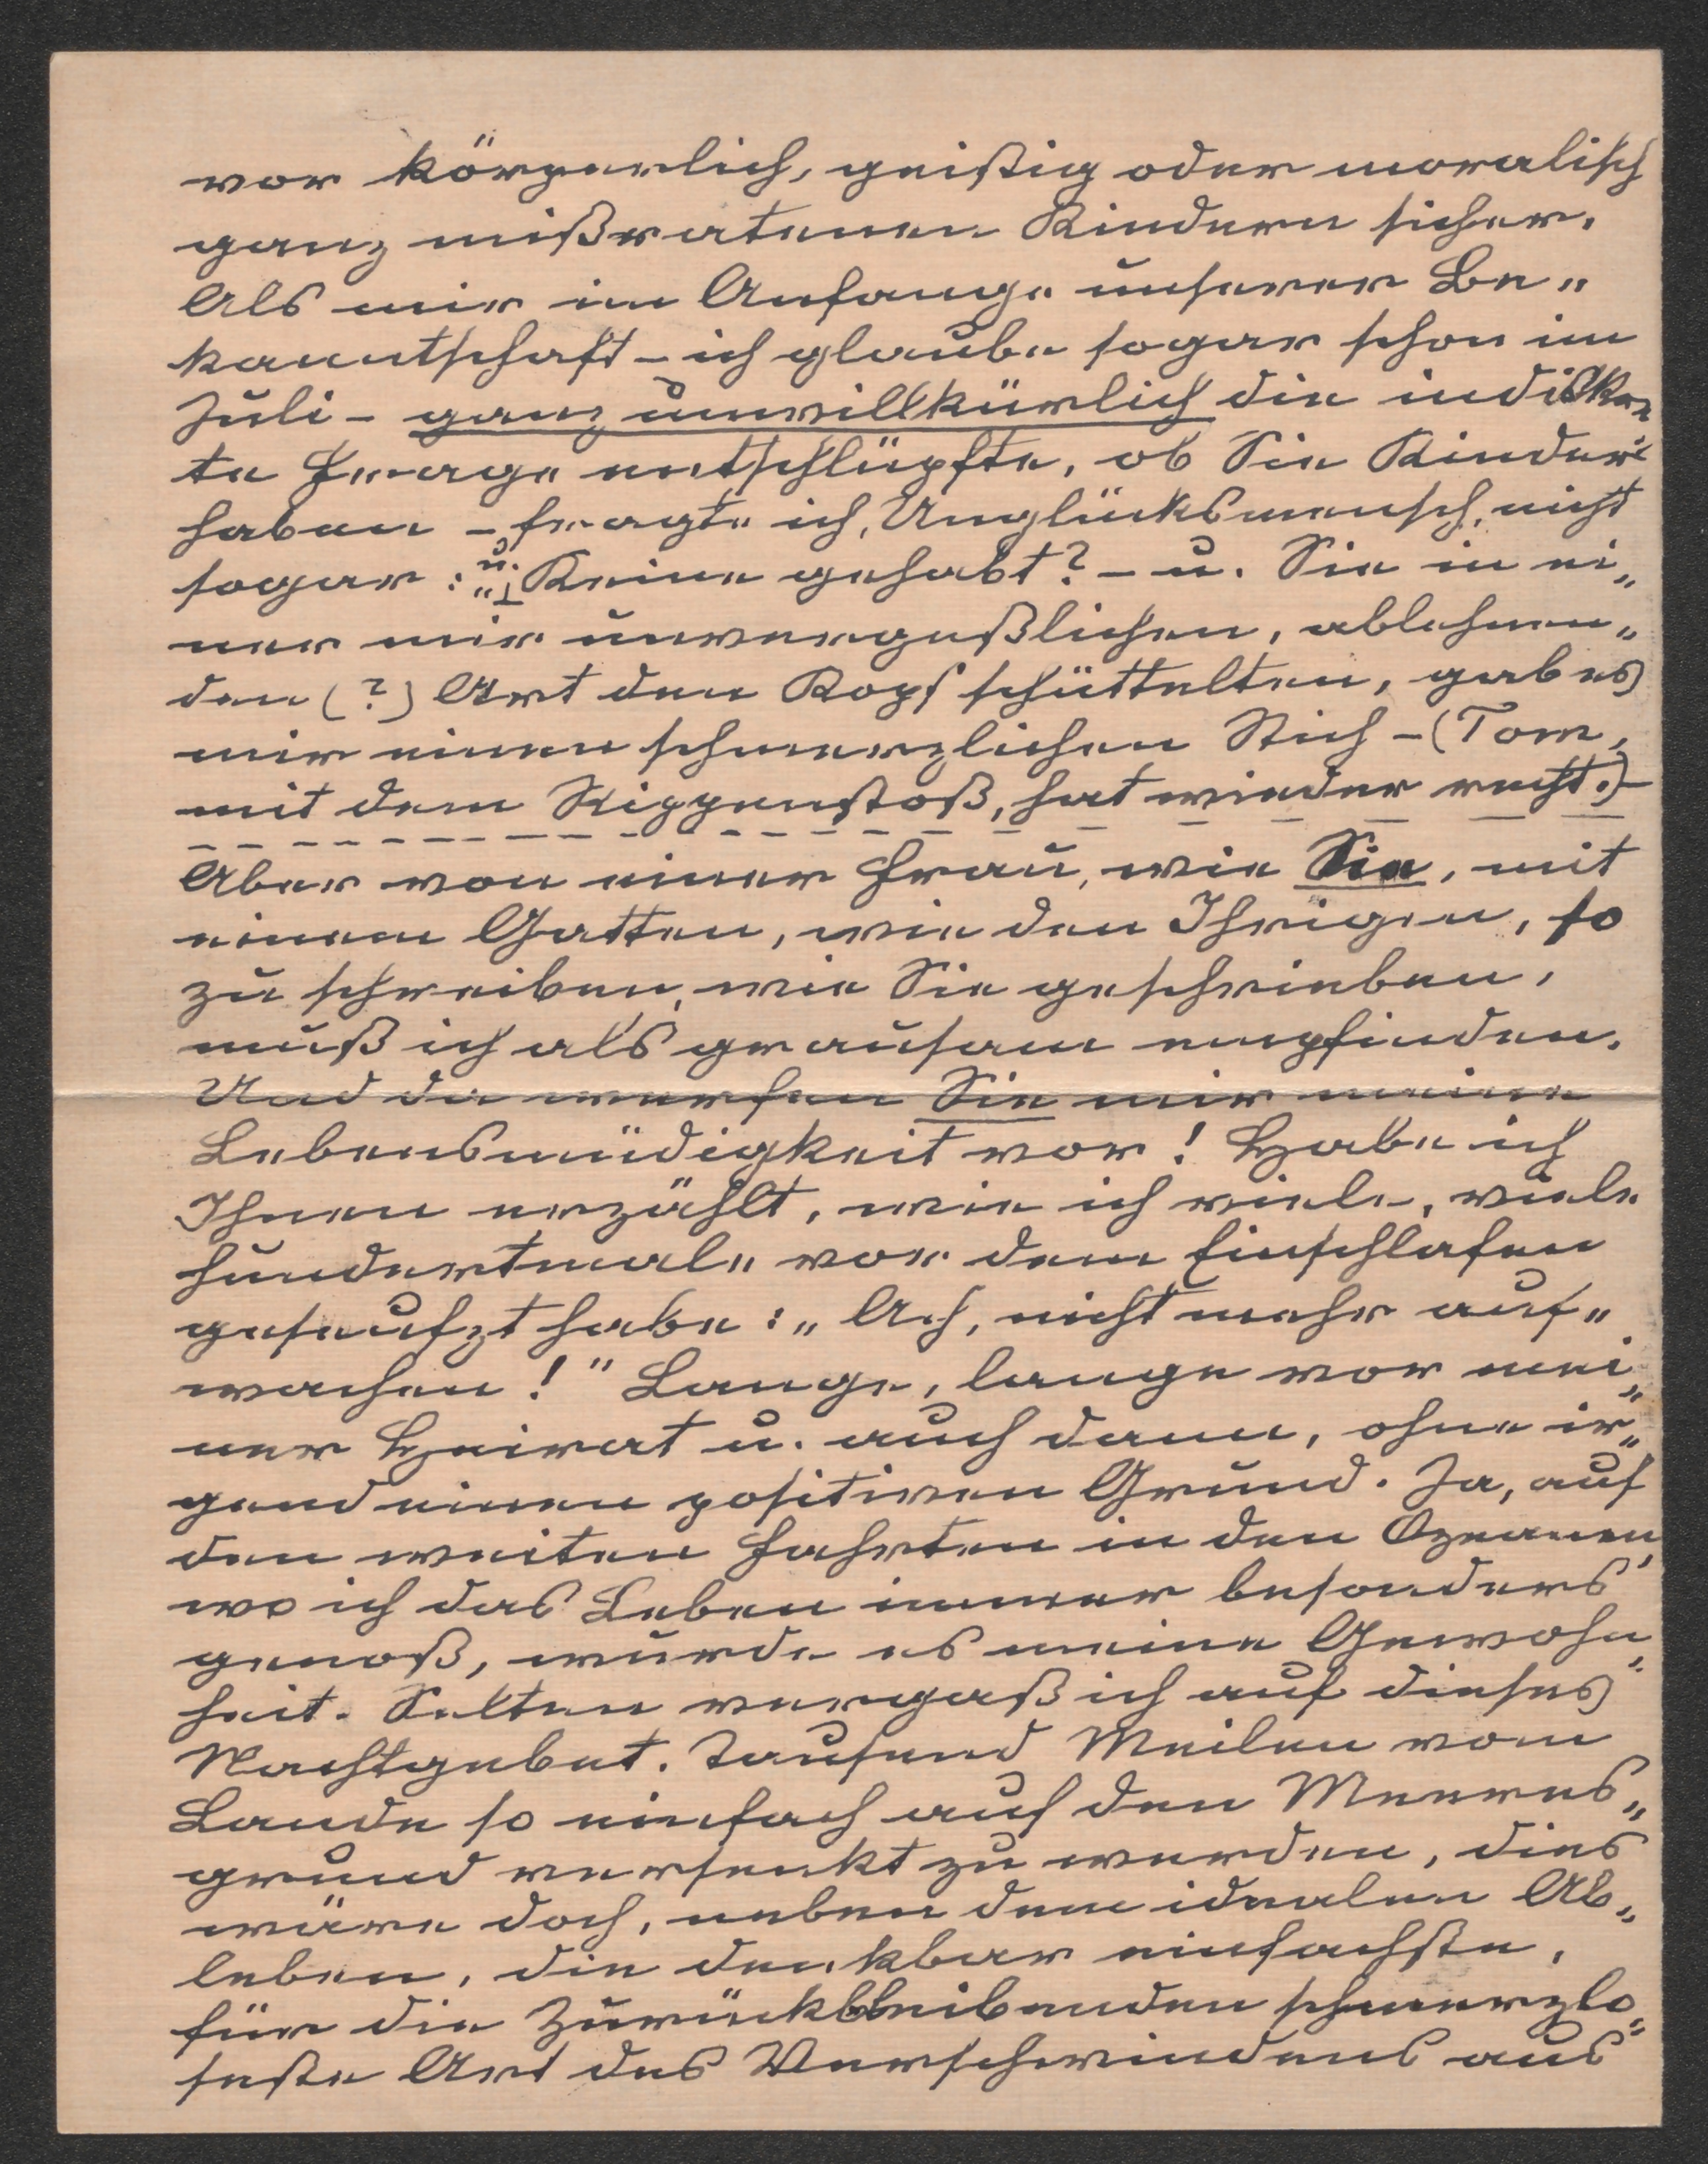 vor körperlich, geistig oder moralisch
ganz mißratenen Kindern sicher.
Als mir im Anfange unserer Be„
kanntschaft – ich glaube sogar schon im
Juli – ganz unwillkürlich die indiskre„
te Frage entschlüpfte, ob Sie Kinder
haben – fragte ich, Unglücksmensch, nicht
sogar: „u. Keine gehabt? – u. Sie in ei„
ner mir unvergeßlichen, ablehnen„
den (?) Art den Kopf schüttelten, gab es
mir einen schmerzlichen Stich – (Tom,
mit dem Rippenstoß, hat wieder recht.) –
Aber von einer Frau, wie Sie, mit
einem Gatten, wie den Ihrigen, so
zu schreiben, wie Sie geschrieben,
muß ich als grausam empfinden.
Und da werfen Sie mir meine
Lebensmüdigkeit vor! Habe ich
Ihnen erzählt, wie ich viele, viele
hundertmale vor dem Einschlafen
geseufzt habe: „Ach, nicht mehr auf„
wachen!" Lange, lange vor mei„
ner Heirat u. auch dann, ohne ir„
gend einen positiven Grund. Ja, auf
den weiten Fahrten in den Ozeanen,
wo ich das Leben immer besonders
genoß, wurde es meine Gewohn„
heit. Selten vergaß ich auf dieses
Nachtgebet. Tausend Meilen vom
Lande so einfach auf den Meeres„
grund versenkt zu werden, dies
wäre doch, neben dem idealen Ab„
leben, die denkbar einfachste,
für die Zurückbleibenden schmerzlo„
seste Art des Verschwindens aus